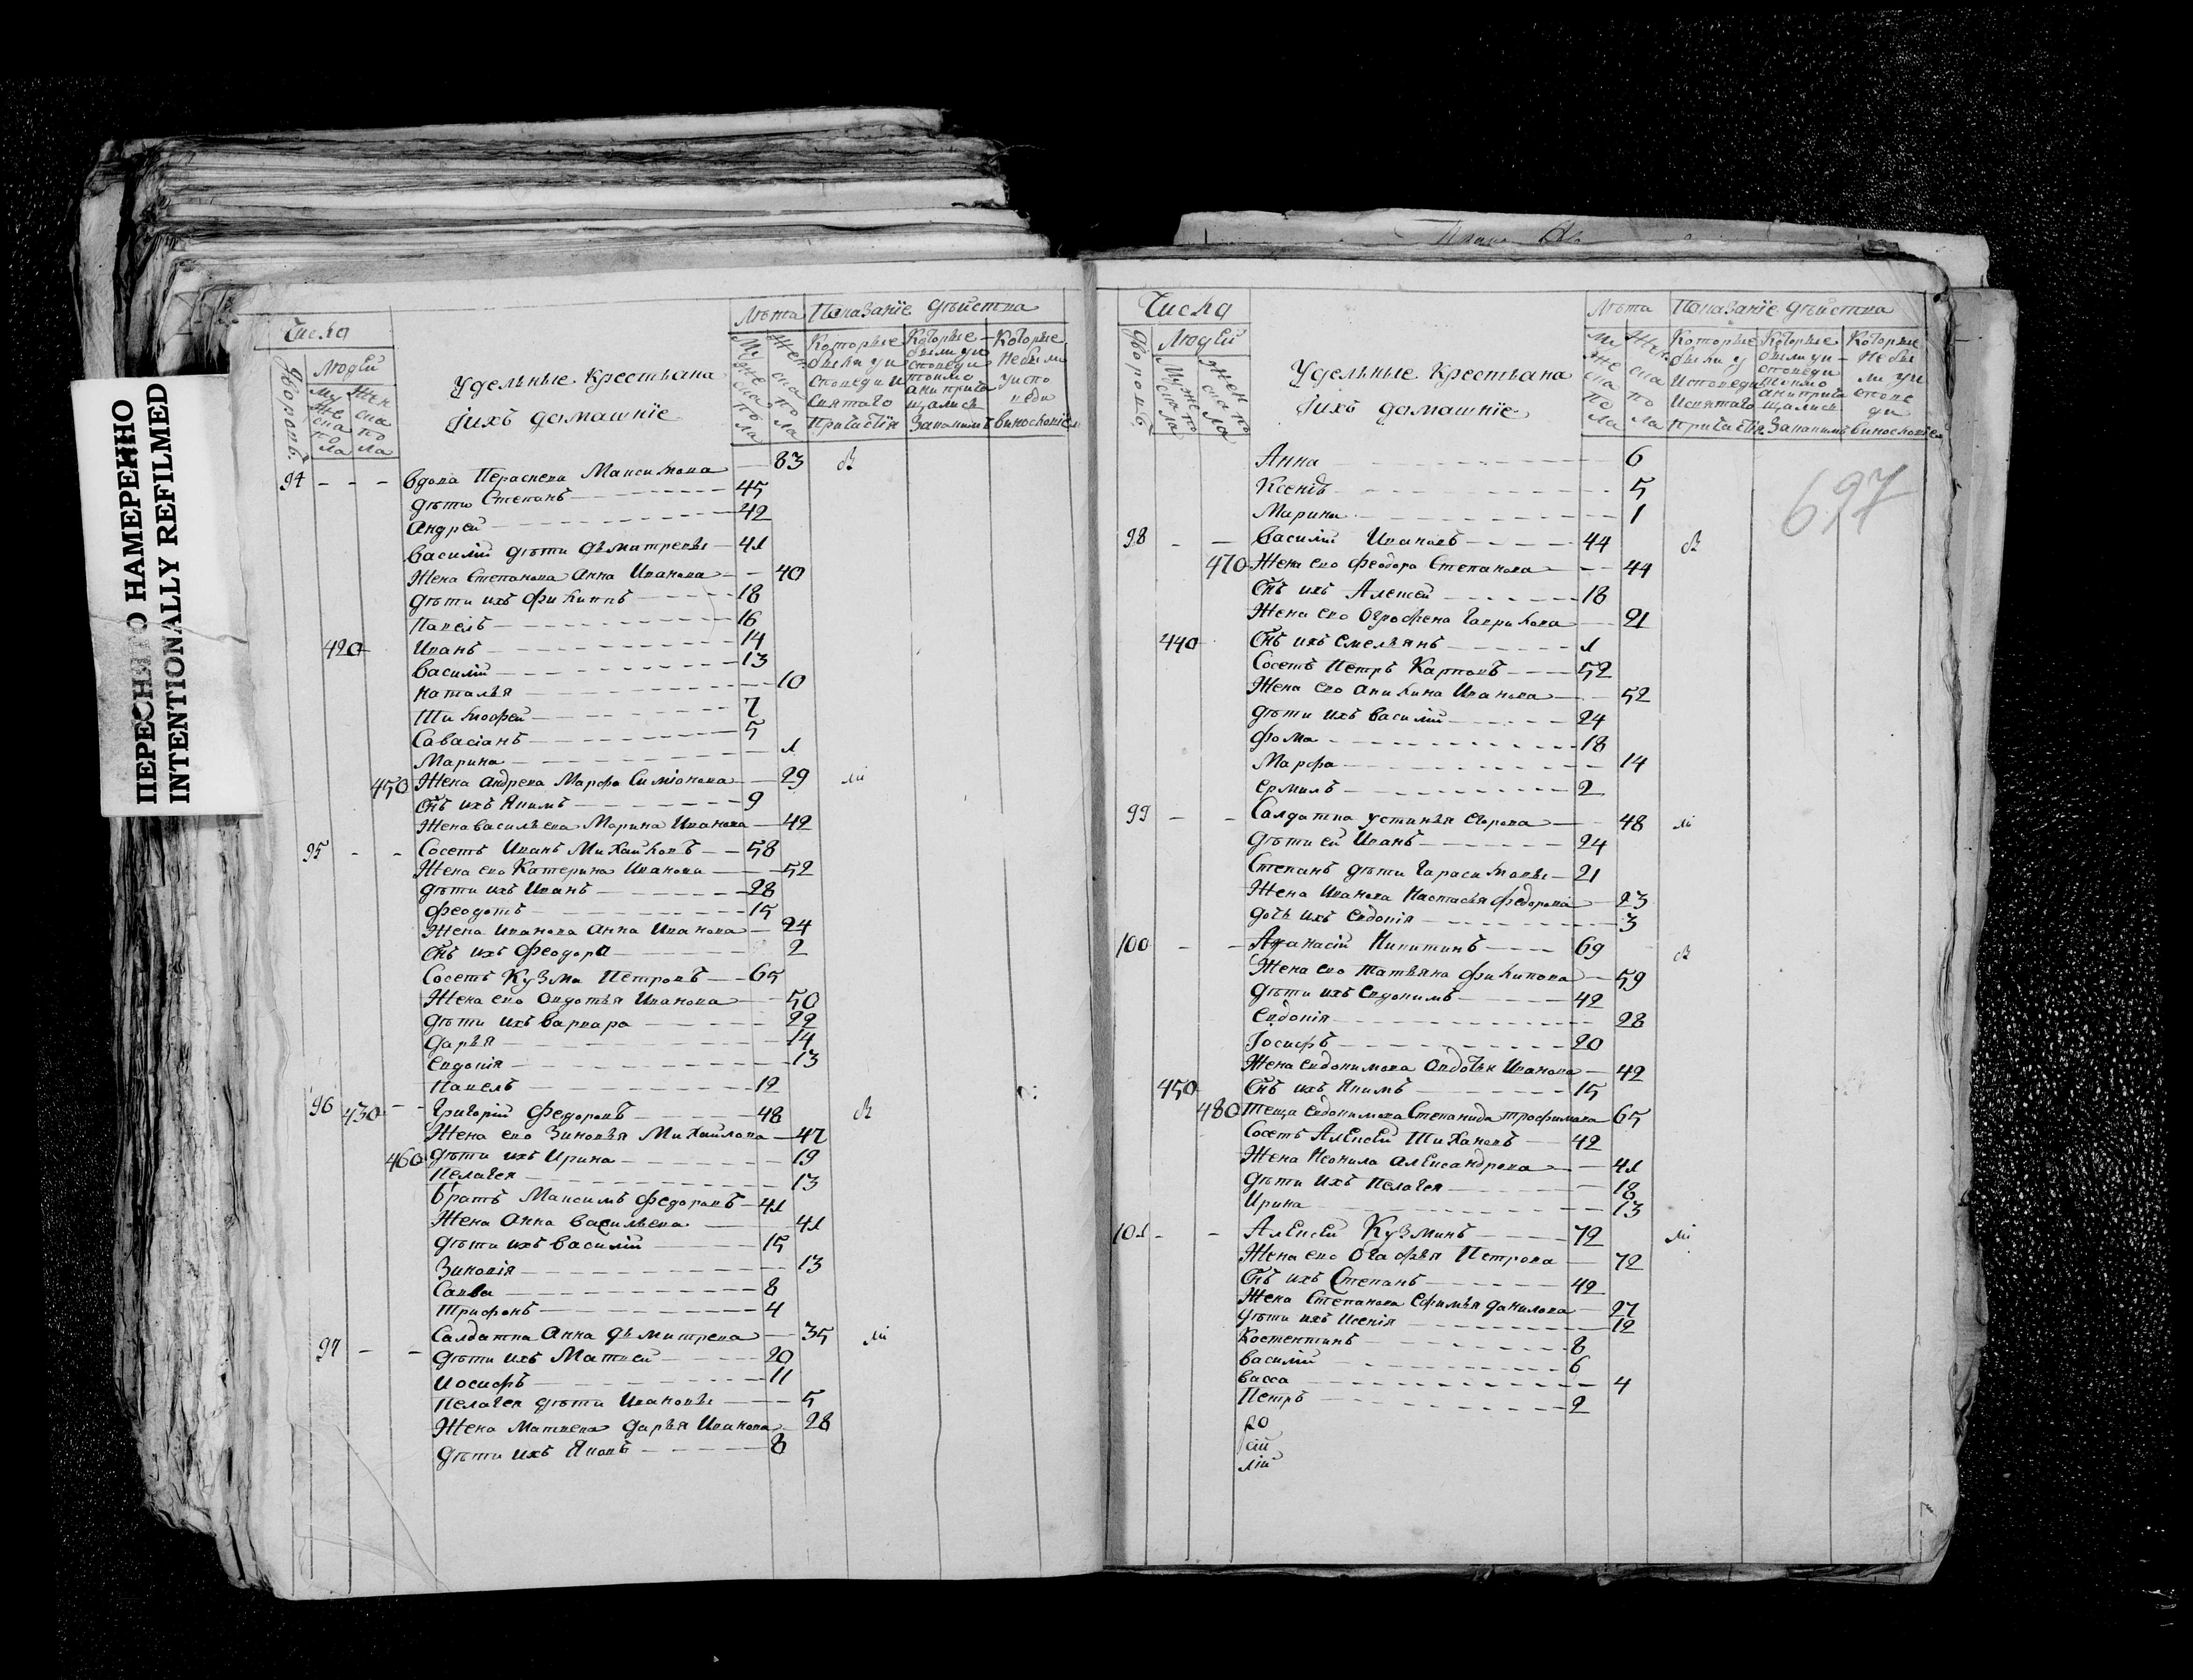 ПЕРЕСНЯТО НАМЕРЕННО
INTENTIONALLY REFILMED
Числа
Дворовъ
Людей
Мужеска пола
Женска пола
Удельные Крестьяна
Iихъ домашнïе
Лѣта
Мужеска пола
Женска пола
Показанïе дѣйства
Которые были у исповеди и святаго причастïя
Которые были у исповеди токмо а не причащались
Которые не были у исповеди
94 - - - вдова Параскева Максимова — 83
дѣти Степанъ — 45
Андрей — 42
Василiй дѣти Дѣмитревы — 41
Жена Степанова Анна Иванова — 40
дѣти ихъ Филиппъ — 18
Павелъ — 16
420 Иванъ — 14
Василiй — 13
Наталья — 10
Тимофей — 7
Савасiанъ — 5
Марина — 1
450 Жена Андрева Марфа Симiонова — 29
Снъ ихъ Якимъ — 9
Жена Васильева Марина Иванова — 42
95 - - Сосетъ Иванъ Михайловъ — 58
Жена ево Катерина Иванова — 52
дѣти ихъ Иванъ — 28
Феодотъ — 15
Жена Иванова Анна Иванова — 24
Снъ ихъ Феодоръ — 2
Сосетъ Кузма Петровъ — 65
Жена ево Овдотья Иванова — 50
дѣти ихъ Варвара — 22
Дарья — 14
Евдокiя — 13
Павелъ — 12
96 430 - - Григорiй Федоровъ — 48
Жена ево Зиновья Михайлова — 47
460 дѣти ихъ Ирина — 19
Пелагея — 13
братъ Максимъ Федоровъ — 41
Жена Анна Васильева — 41
дѣти ихъ Василiй — 15
Зиновiя — 13
Савва — 8
Трифонъ — 4
97 - - Салдатка Анна Дѣмитрева — 35
дѣти ихъ Матвей — 20
Иосифъ — 11
Пелагея дѣти Ивановы — 5
Жена Матвева Дарья Иванова — 28
дѣти ихъ Яковъ — 8
Числа
Дворовъ
Людей
Мужеска пола
Женска пола
Удельные Крестьяна
Iихъ домашнïе
Лѣта
Мужеска пола
Женска пола
Показанïе дѣйства
Которые были у исповеди и святаго причастïя
Которые были у исповеди токмо а не причащались
Которые не были у исповеди
697
Анна — 6
Ксенiя — 5
Марина — 1
98 - - Василiй Ивановъ — 44
470 Жена ево Феодора Степанова — 44
Снъ ихъ Алексей — 18
Жена ево Огрофена Гаврилова — 21
440 Снъ ихъ Емельянъ — 1
Сосетъ Петръ Карповъ — 52
Жена ево Акилина Иванова — 52
дѣти ихъ Василiй — 24
Фома — 18
Марфа — 14
Ермилъ — 2
99 - - Салдатка Устинья Егорова — 48
дѣти ей Иванъ — 24
Степанъ дѣти Гарасимовы — 21
Жена Иванова Настасья Федорова — 23
дочь ихъ Евдокiя — 3
100 - - Афанасiй Никитинъ — 69
Жена ево Татьяна Филипова — 59
дѣти ихъ Евдокимъ — 42
Евдокiя — 28
Iосифъ — 20
Жена Евдокимова Овдотья Иванова — 42
450 Снъ ихъ Якимъ — 15
480 Теща Евдокимова Степанида Трофимова 65
Сосетъ Алексей Тихановъ — 42
Жена Неонила Александрова — 41
дѣти ихъ Пелагея — 18
Ирина — 13
101 - - Алексей Кузминъ — 72
Жена ево Огафья Петрова — 72
Снъ ихъ Степанъ — 42
Жена Степанова Ефимья Данилова — 27
дѣти ихъ Ксенiя — 12
Костентинъ — 8
Василiй — 6
Васса — 4
Петръ — 2
сiй
лiй